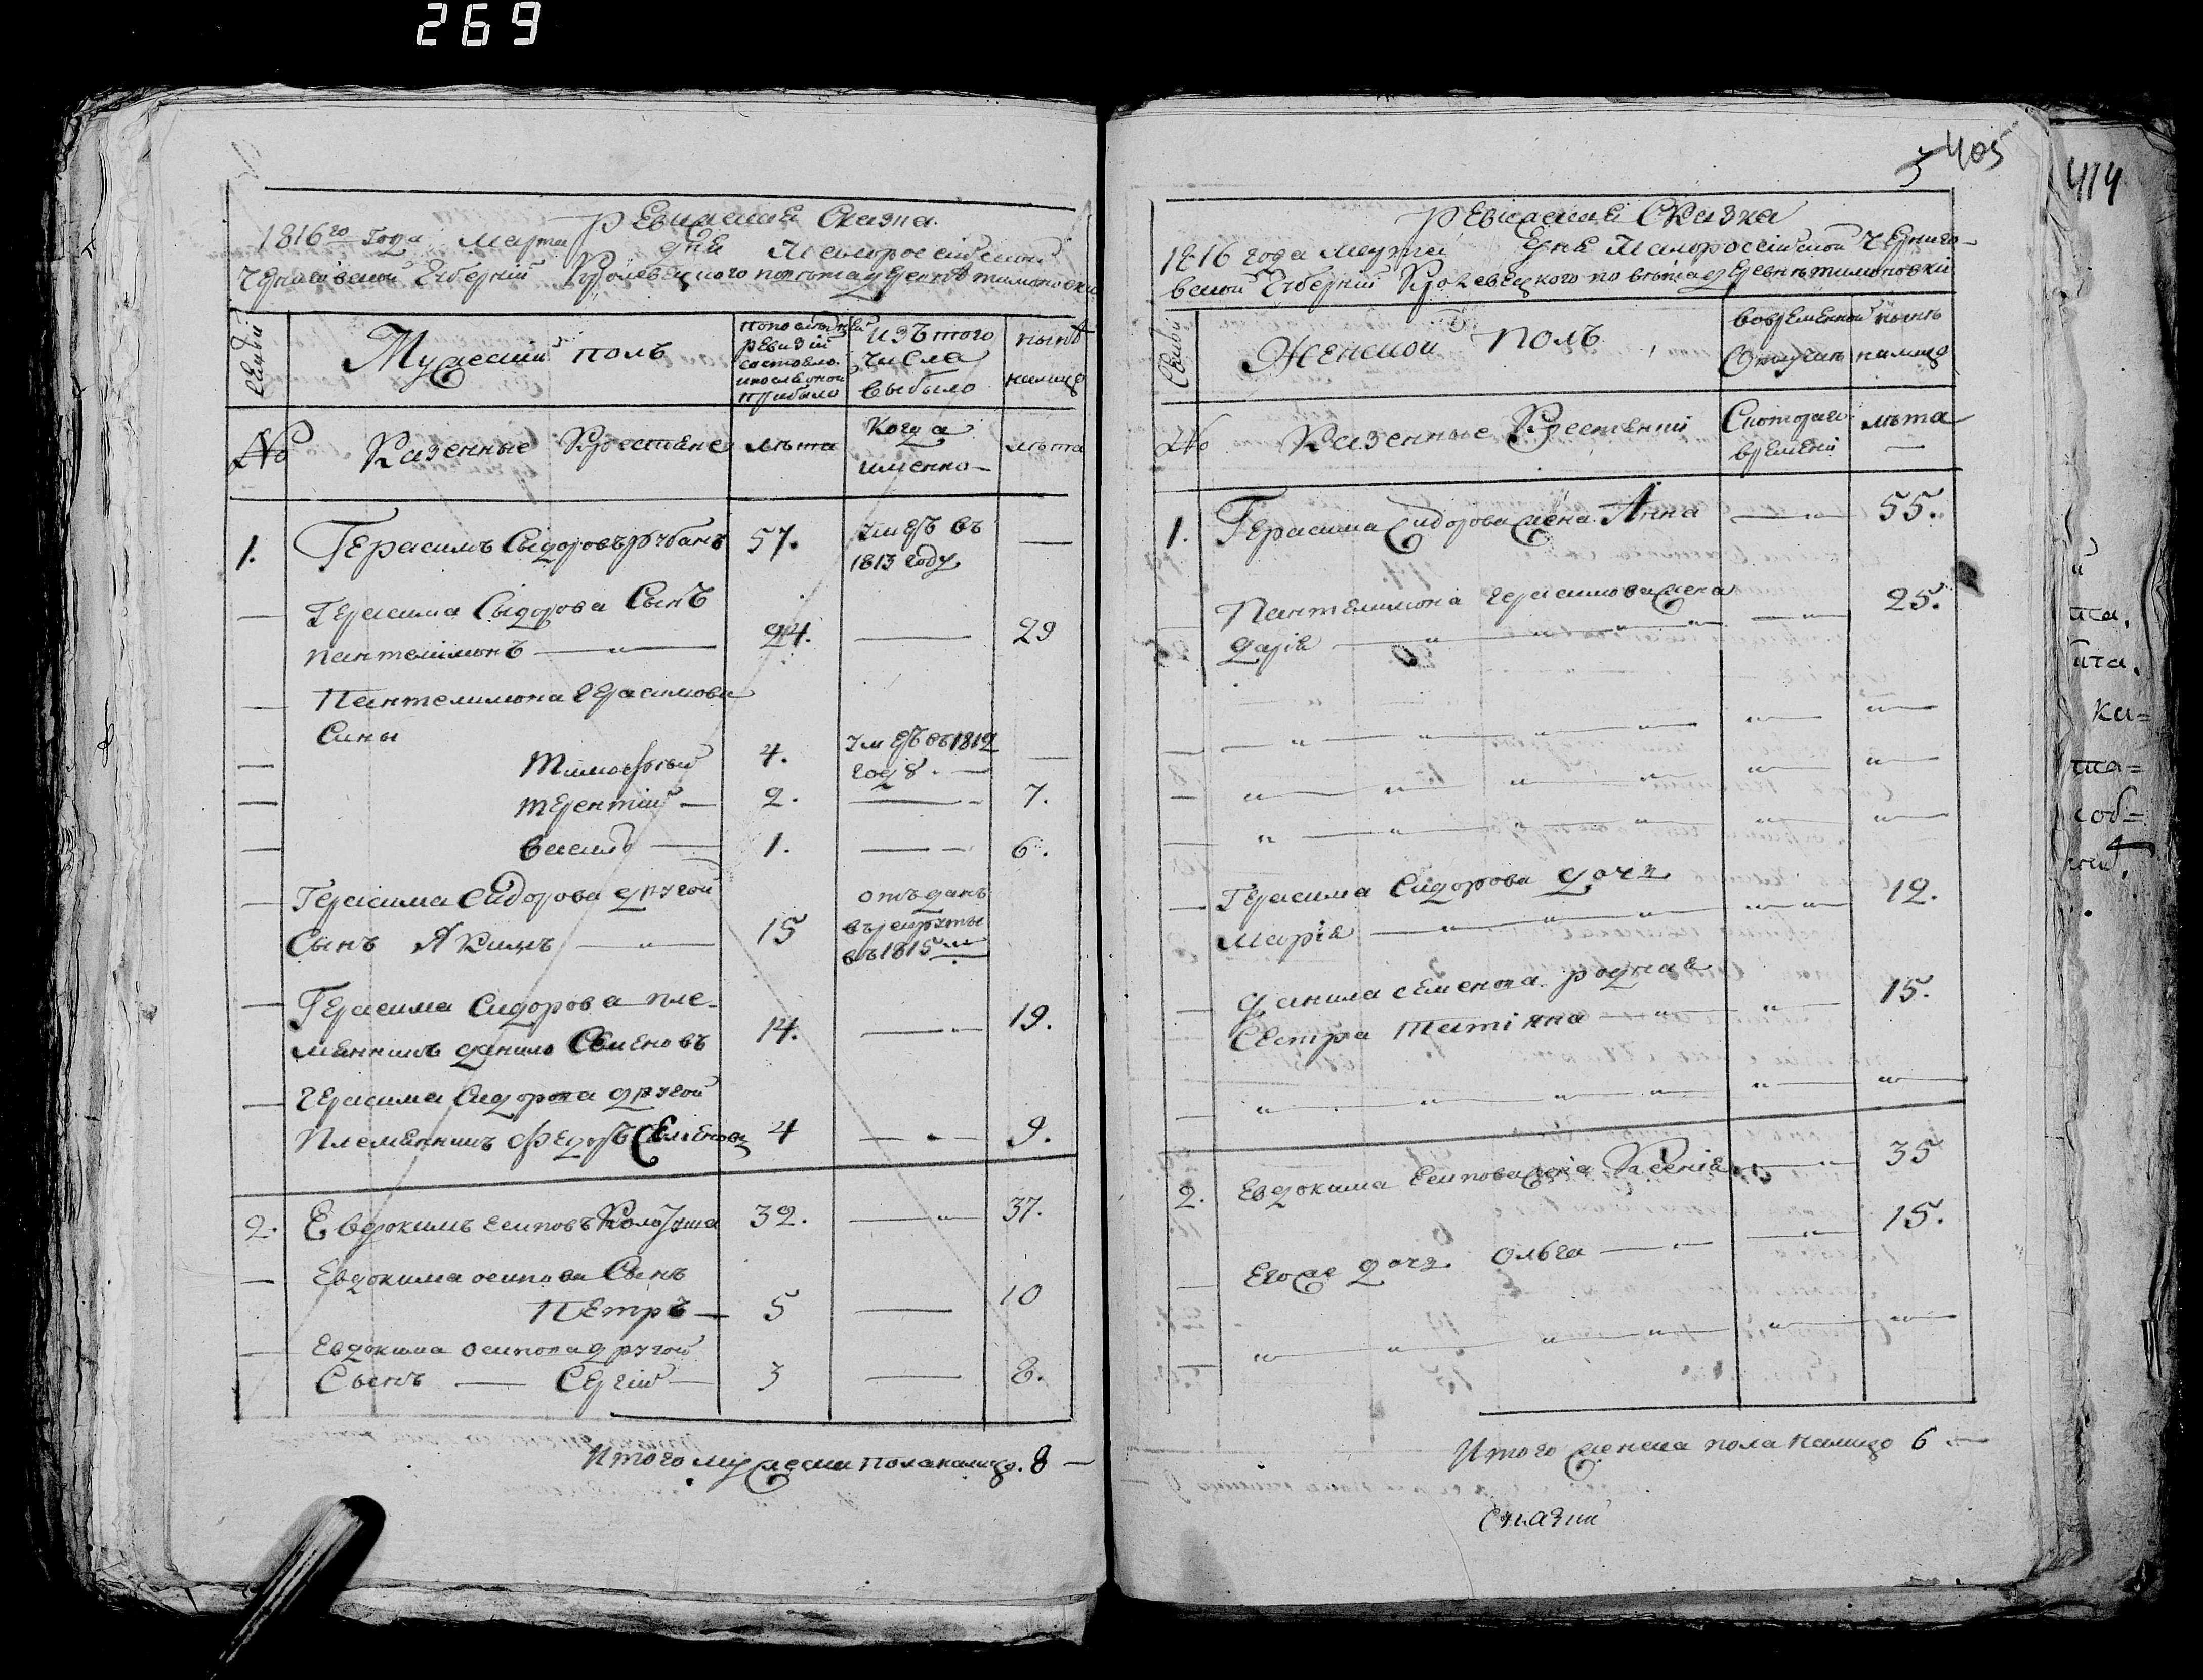 269
Ревизская Сказка.
1816го года Марта дня Малоросийской
Черниговской Губерний Кролевецкого повета деревне тимоновки
Семьи
Мужеский полъ
попоследней
ревизий
состояло
ипослеоной
прибыло
изъ того
числа
выбыло
ныне
налицо
№
Казенные Крестяне
лета
Когда
имянно
лета
1.
Герасимъ Сыдоровъ рубанъ
57.
умеръ въ
1813 году
—
Герасима Сыдорова Сынъ
пантелимонъ
24.
29
Пантелимона Герасимова
Сины
Тимофтий
4.
умеръ въ 1812
году
терентий
2.
7.
василь
1.
6.
Герасима Сидорова другой
Сынъ Якимъ
15
отъданъ
въ рекруты
въ 1815
Герасима Сидорова пле-
мянникъ данило Семеновъ
14.
19.
Герасима Сидорова другой
Племянникъ Федоръ Семеновъ
4
9.
2.
Евдокимъ есиповъ
32.
37.
Евдокима осипова Сынъ
Петръ
5
10
Евдокима осипова другой
Сынъ — Сергий
3
8.
Итого мужеска пола налицо. 8 —
405
3
Ревизская Сказка
1816 года марта дня Малоросийской Чернигo-
вской Губерний Кролевецкого повета деревне тимоновки
Семьи
Женской Полъ
вовременной
Отлучки
ныне
налицо
№
Казенные Крестянки
Скоторого
времени
лета
1.
Герасима Сидорова жена Анна
55.
Пантелимона герасимова жена
дария
25.
Герасима Сидорова дочь
Мария
12.
данила семенова родная
Сестра татияна
15.
2.
Евдокима есипова жена Ксения
35
Егоже дочь Ольга
15.
Итого женска пола налицо 6 —
414
та.
ка=
та=
соб=